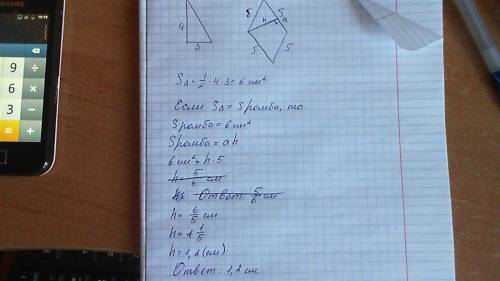 4
3
5 5
h a
5 5
S△ = 1/2 · 4 · 3 = 6 см²
Если S△ = Sромба, то
Sромба = 6 см²
Sромба = ah
6 см² = h · 5
h = 5/6 см
Ответ: 5/6 см
h = 6/5 см
h = 1 1/5
h = 1,2 (см)
Ответ: 1,2 см
9 ÷
6 ×
3 −
= +